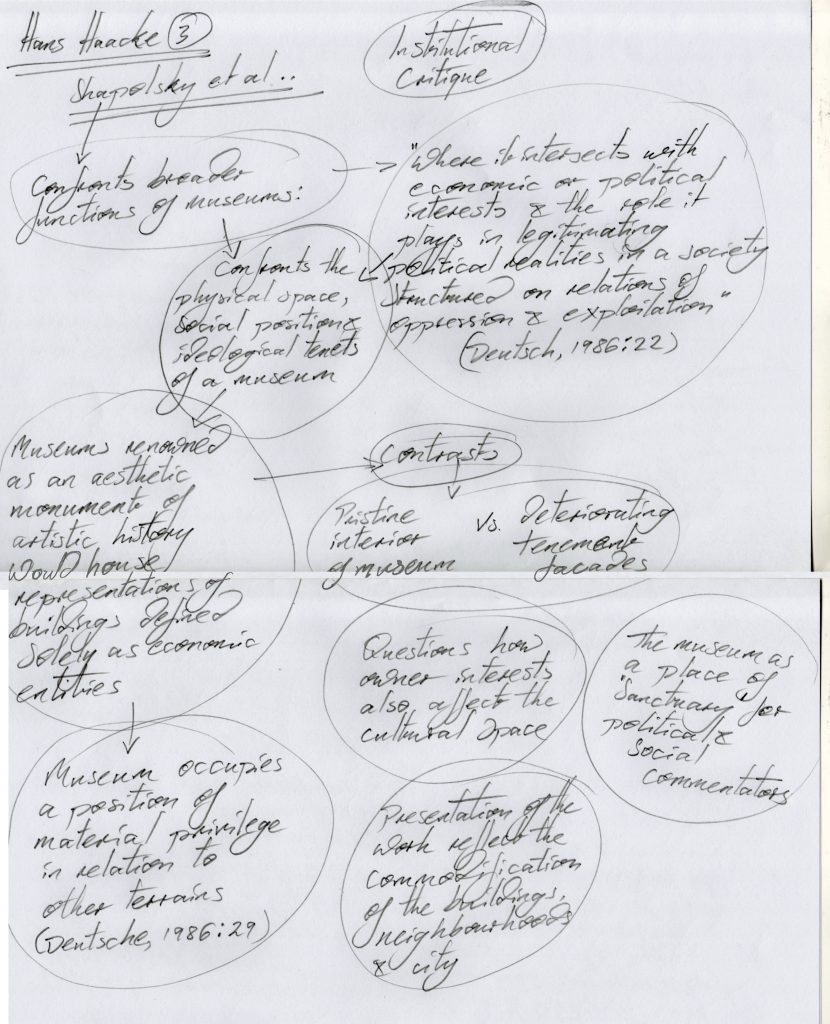 Hans Haacke 3
Shapolsky et al..
Institutional
Critique
Confronts broader
functions of museums:
"Where it intersects with
economic or political
interests & the role it
plays in legitimating
political realities in a society
structured on relations of
oppression & exploitation"
(Deutsch, 1986:22)
Confronts the
physical space,
social position &
ideological tenets
of a museum
Museums renowned
as an aesthetic
monument of
artistic history
would house
representations of
buildings defined
solely as economic
entities
Contrasts
Pristine
interior
of museum
Vs.
deteriorating
tenement
facades
Museum occupies
a position of
material privilege
in relation to
other terrains
(Deutsche, 1986:29)
Questions how
owner interests
also affect the
cultural space
Presentation of the
work reflect the
commodification
of the buildings,
neighbourhoods
& city
The museum as
a place of
"Sanctuary" for
political &
social
commentators